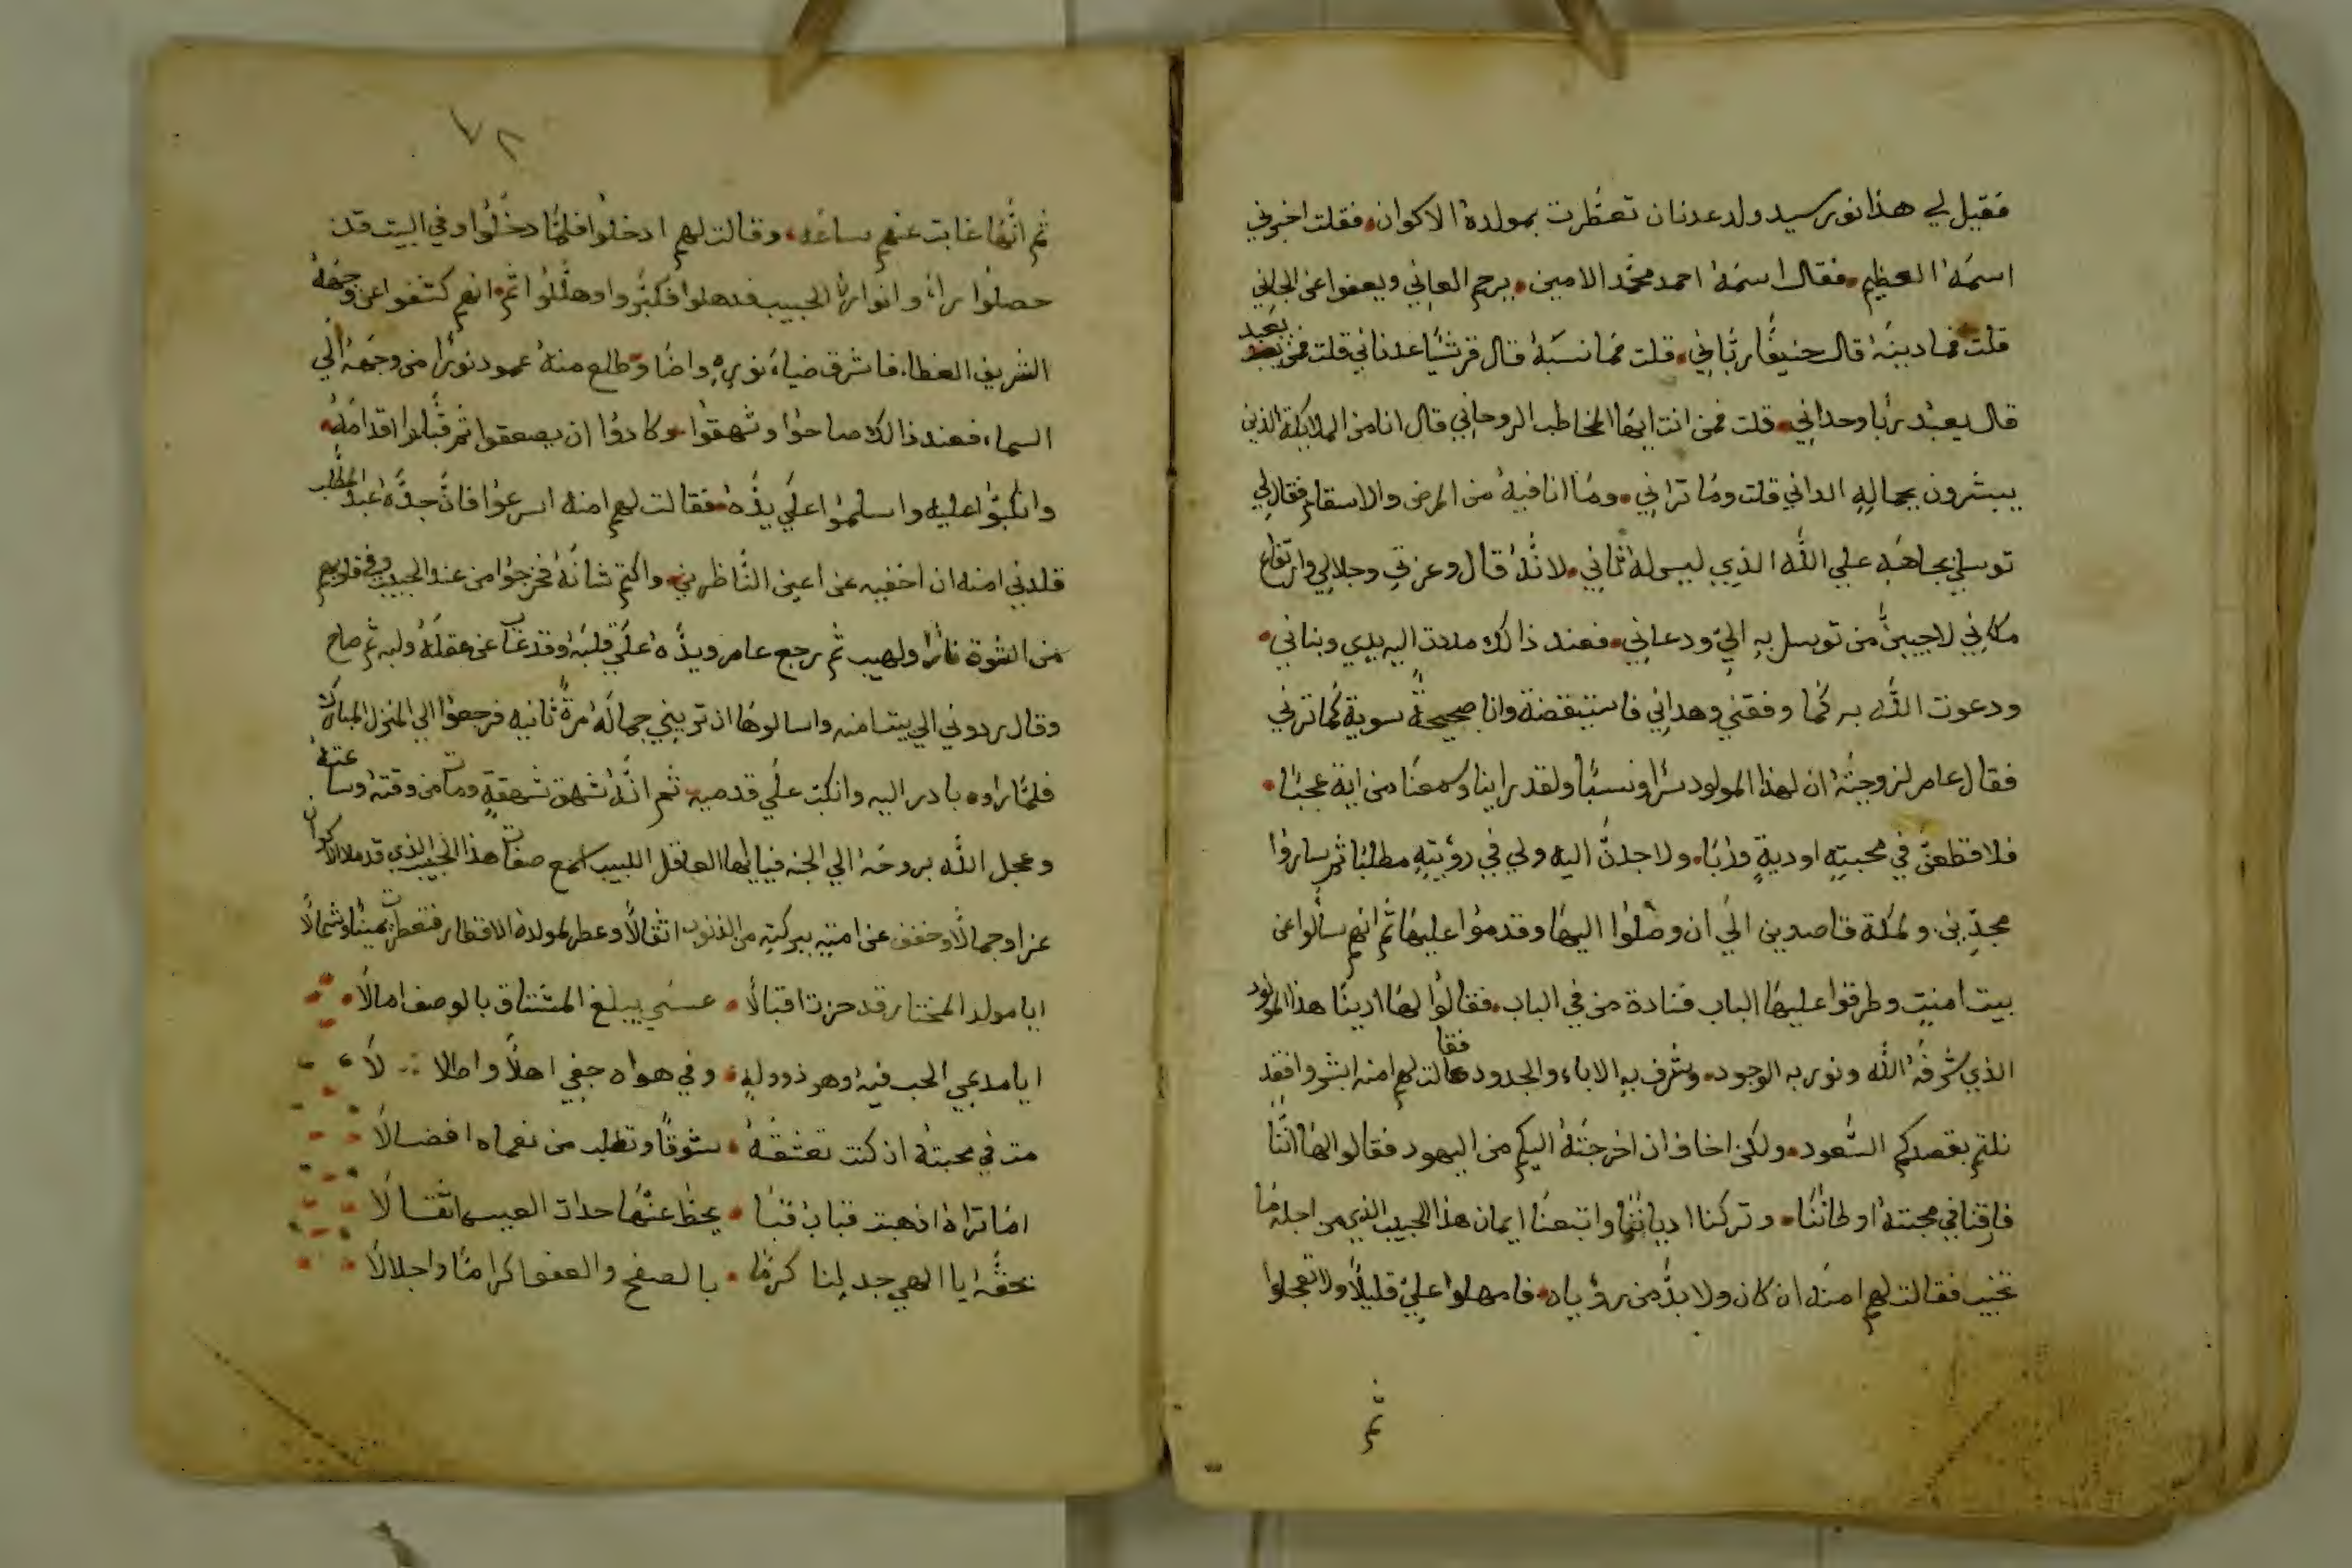 فقيل لي هذا نور سيد ولد عدنان تعطرت بمولدة الاكوان فقلت اخبروني
اسمهُ العظيم فقال اسمهُ احمد محمّد الامين يرحم العاني ويعفوا عن الجاني
قلت فما دينهُ قال حنيفًا ربّاني قلت فما نسبهُ قال قرشيًا عدناني قلت فمن يعبد
قال يعبدُ ربًا وحداني قلت فمن انت ايها المخاطب الروحاني قال انا من الملايكة الذين
يبشرون بجماله الداني قلت وما تراني وما انا فيهُ من المرض والاسقام فقال لي
توسلي بجاههِ علي اللّه الذي ليس لهُ ثاني لانّهُ قال وعزتي وجلالي وارتفاع
مكاني لاجيبنّ من توسل بهِ اليّ ودعاني فعند ذالك مددت اليه يدي وبناني
ودعوت اللّه به كما وفقني وهداني فاستيقضة وانا صحيحةً سوية كما تراني
فقال عامر لزوجتهُ ان لهذا المولود سرًا ونسبًا ولقد راينا وسمعنا من اية عجبًا
فلاقطعنّ في محبتهِ اوديةٍ وربًا ولاجدنّ اليه ولي في رؤيتهِ مطلبًا ثم ساروا
مجدّين ولمكة قاصدين الي ان وصلوا اليها وقدموا عليها ثم انهم سالوا عن
بيت امنةِ وطرقوا عليها الباب فنادة من في الباب فقالوا لها ارينا هذا المولود
الذي شرفهُ اللّه ونور به الوجود وشرف بهِ الاباء والجدود فقالت لهم امنه ابشروا فقد
نلتم بقصدكم السّعود ولكن اخاف ان اخرجتهُ اليكم من اليهود فقالوا لها انّنا
فارقنا في محبتهُ اوطاننا وتركنا ادياننا واتبعنا ايمان هذا الحبيب الذي من اجله ما
نخيب فقالت لهم امنه ان كان ولا بدّ من رؤياه فامهلوا عليّ قليلًا ولا تعجلوا
ثم
٤٨
ثم انّها غابت عنهم ساعه وقالت لهم ادخلوا فلمّا دخلوا وفي البيت قد
حصلوا راءو انوارهُ الحبيب فدهلوا فكبّروا وهلّلوا ثم انهم كشفوا عن وجههُ
الشريف الغطاء فاشرق ضياءُ نورهِ واضاء وطلع منهُ عمود نورًا من وجههُ الي
السماء فعند ذالك صاحوا وشهقوا وكادوا ان يصعقوا ثم قبّلوا اقدامهُ
وانكبّوا عليه واسلموا علي يدّهُ فقالت لهم امنه اسرعوا فانّ جدّهُ عبد المطّلب
قلدني امنه ان اخفيه عن اعين النّاظرين واكتم شانهُ فخرجوا من عند الحبيب وفي قلوبهم
من الشوة نارًا ولهيب ثم رجع عامر ويدّهُ علي قلبهُ وقد غاب عن عقلهُ ولبه ثم صاح
وقال ردوني الي بيت امنه واسالوها ان تريني جمالهُ مرةً ثانيه فرجعوا الي المنزل المبارك
فلمّا راوه بادر اليه وانكبت علي قدميه ثم انّهُ شهق شهقةٍ ومات من وقتهُ وساعتهُ
وعجل اللّه بروحه الي الجنه فيا ايها العاقل اللبيب اسمع صفات هذا الحبيب الذي قد ملا الاكوان
عزا وجمالًا وخفف عن امتهِ ببركتهِ من الذنوب اثقالًا وعطر لمولدة الاقطار فتعطرت يمينًا وشمالًا
ايا مولد المختار قد حزت اقبالًا عسي يبلغ المشتاق بالوصف امالًا
ايا مدعي الحب فيهُ وهو ذو ولهٍ وفي هواه جفي اهلًا واطلالًا
مت في محبتهُ ان كنت تعشقهُ شوقًا وتطلب من نعماه افضالًا
اما تراهُ اذ هبت قبابُ قبا يحطّ عنها حداة العيس اثقالًا
بحقّه ايا الهي جد لنا كرمًا بالصفح والعفو اكرامًا واجلالًا